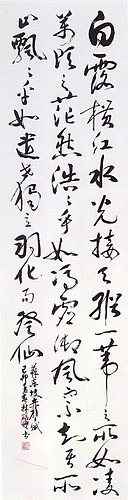 白露橫江水光接天縱一葦之所如凌
萬頃之茫然浩々乎如馮虛御風而不知其所
止飄々乎如遺世獨立羽化而登仙
蘇東坡赤壁賦